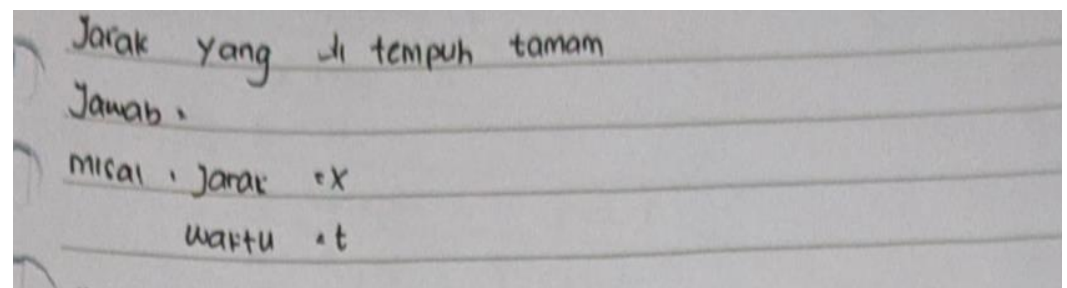 Jarak yang di tempuh tamam
Jawab :
misal : Jarak = x
waktu = t